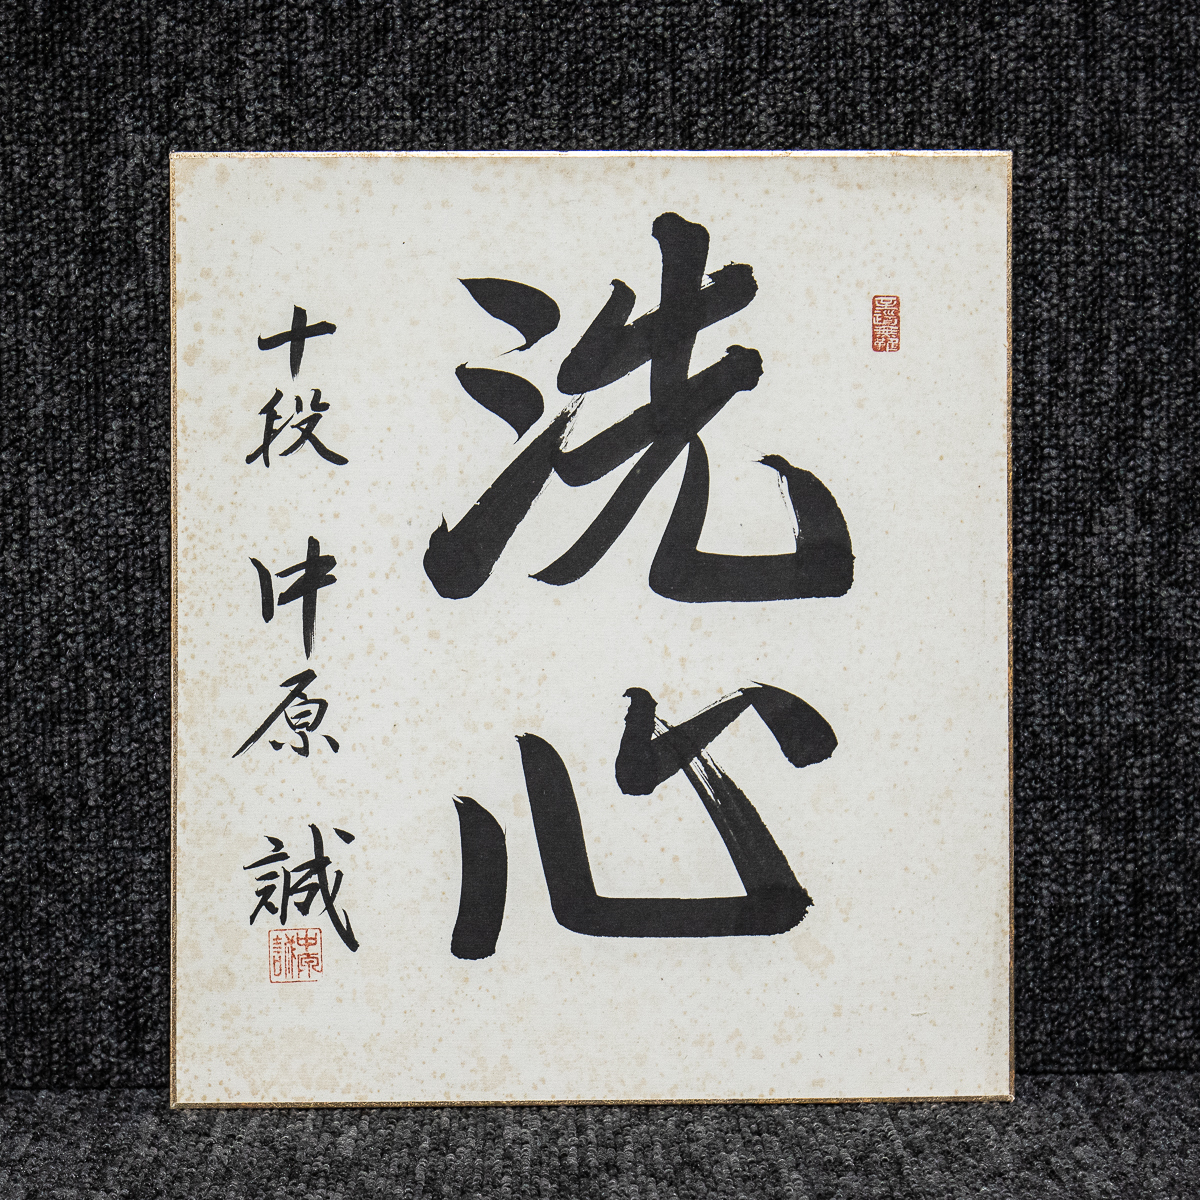 洗心
十段 中原 誠
中原誠